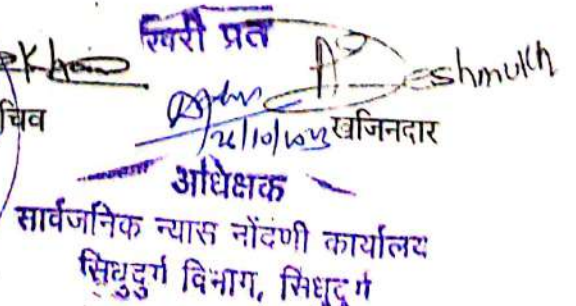 खरी प्रत
Deshmukh
चिव
खजिनदार
अधिक्षक
सार्वजनिक न्यास नोंदणी कार्यालय
सिंधुदुर्ग विभाग, सिंधुदुर्ग